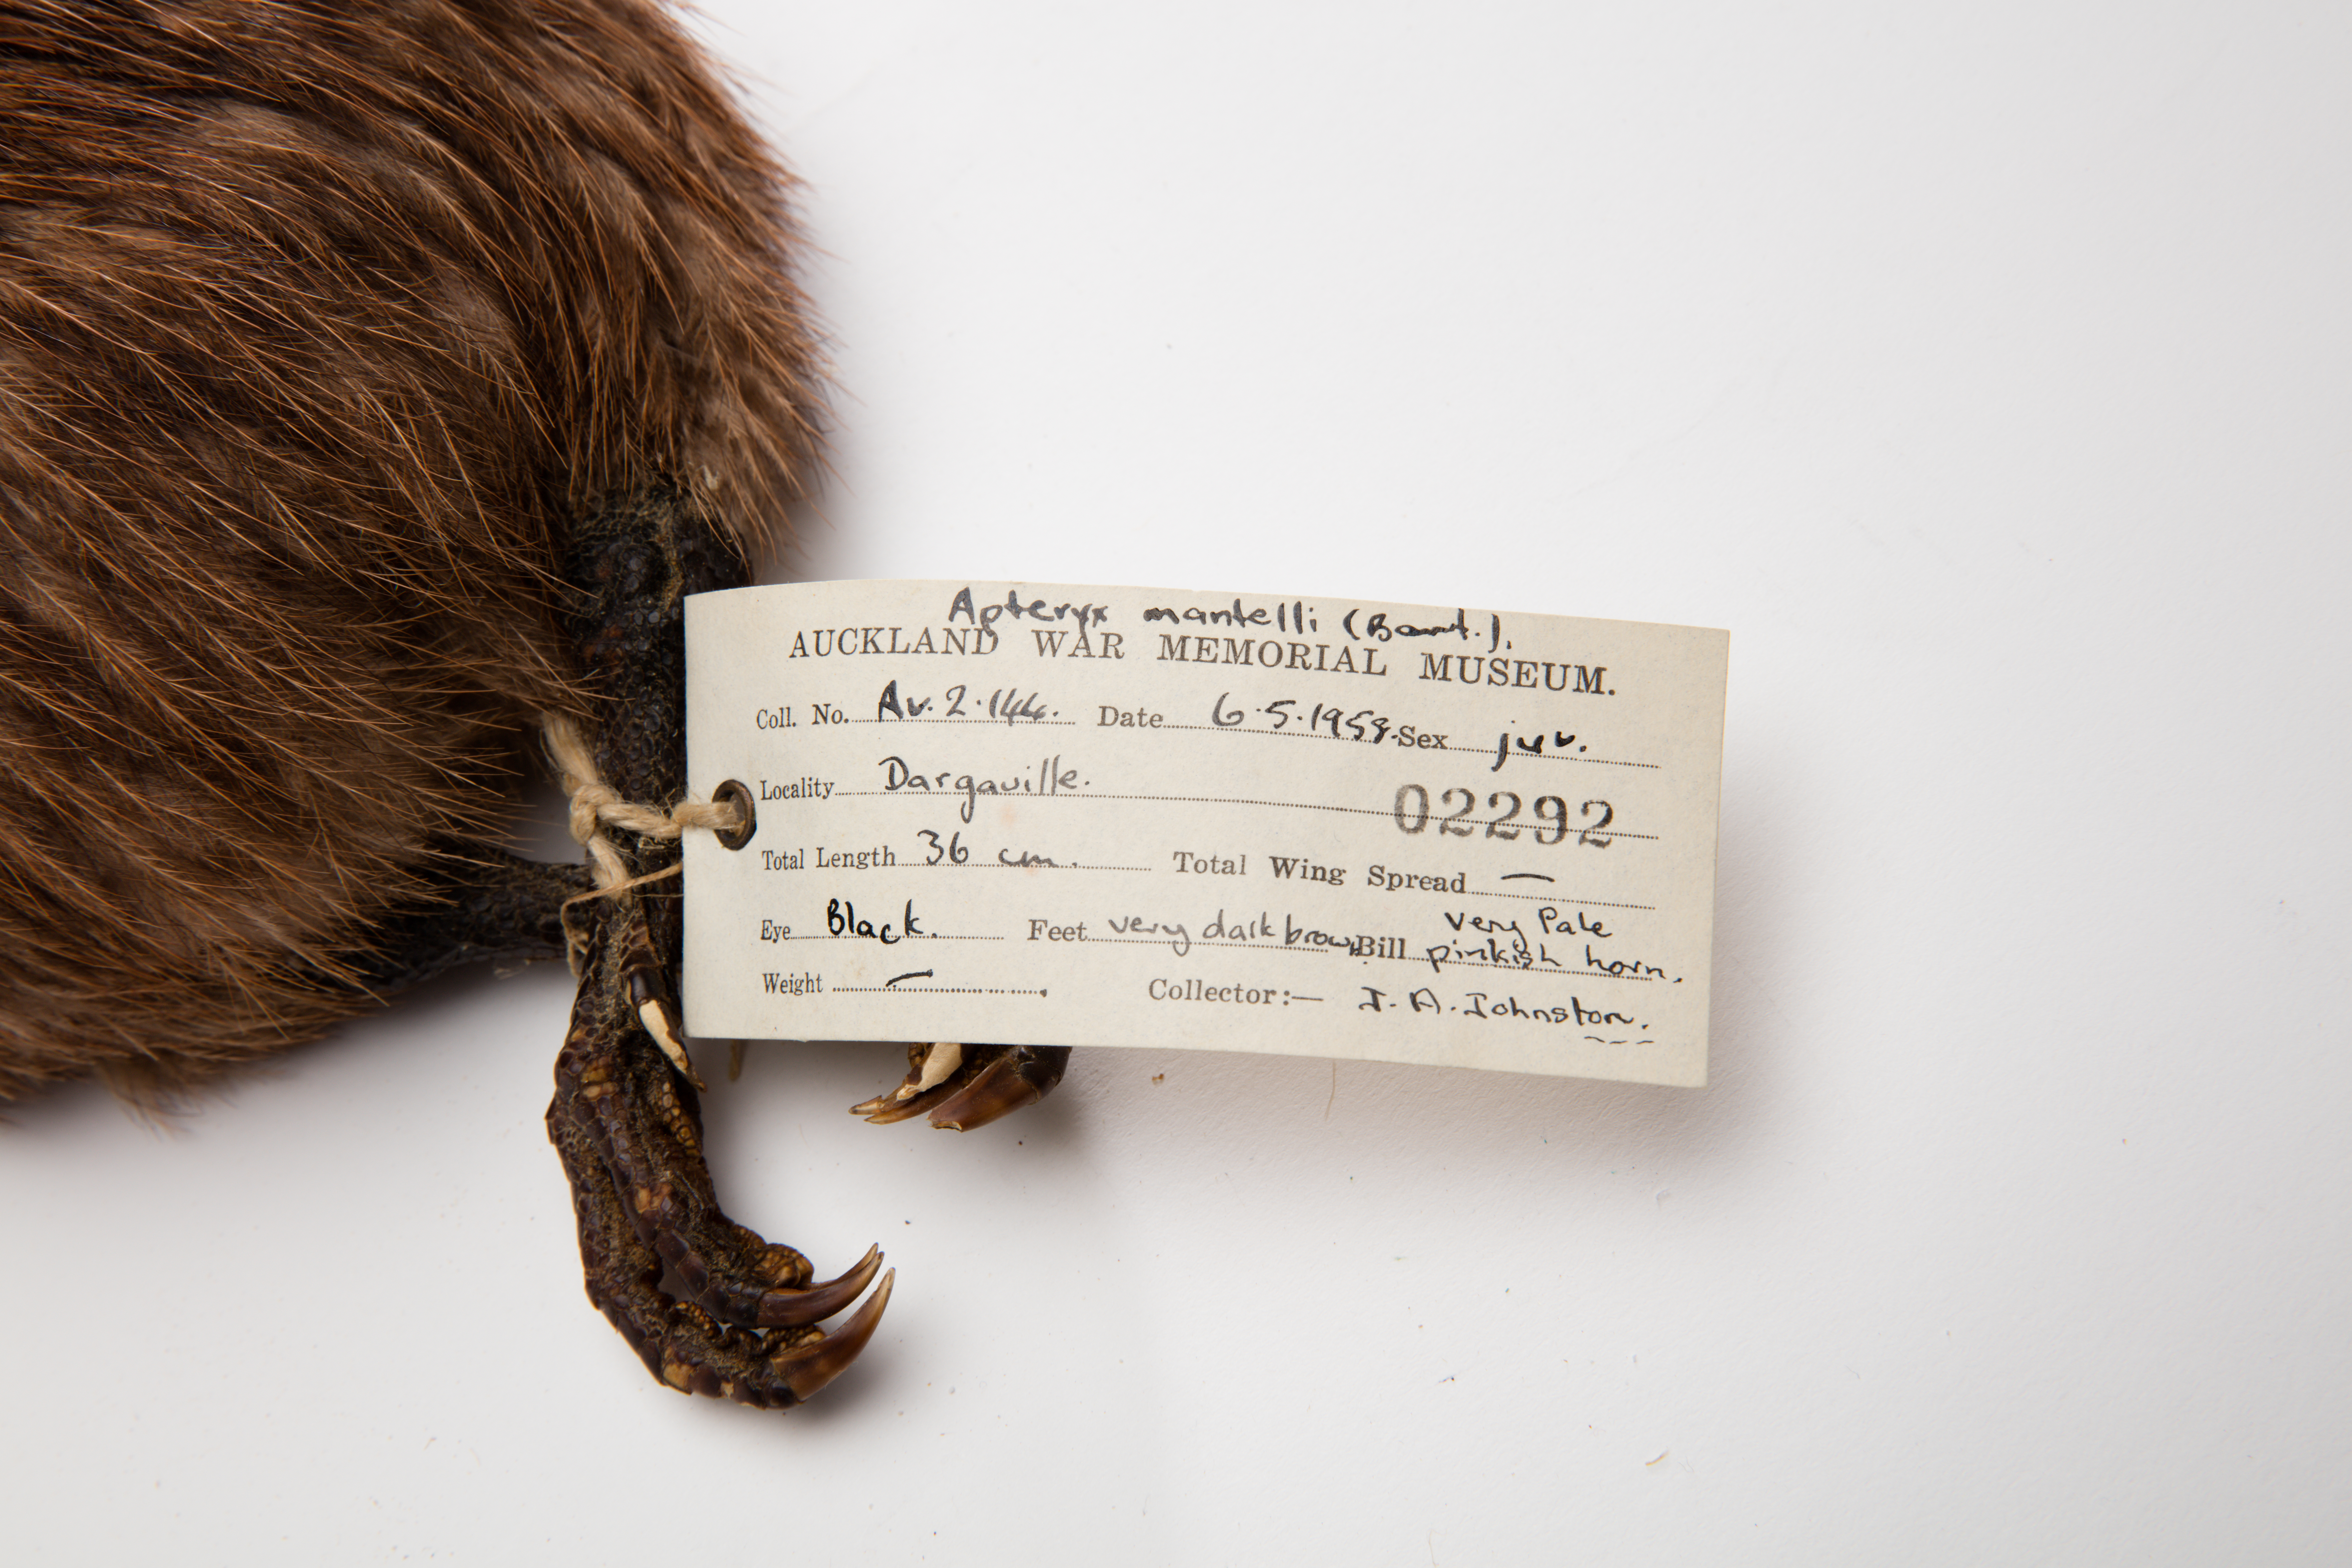 Apteryx mantelli (Bart.).
AUCKLAND WAR MEMORIAL MUSEUM.
Coll. No. Av. 2.144. Date 6.5.1958. Sex juv.
Locality Dargaville.
02292
Total Length 36 cm. Total Wing Spread —
Eye Black. Feet very dark brown Bill very Pale
pinkish horn.
Weight — Collector:— I. A. Johnston.